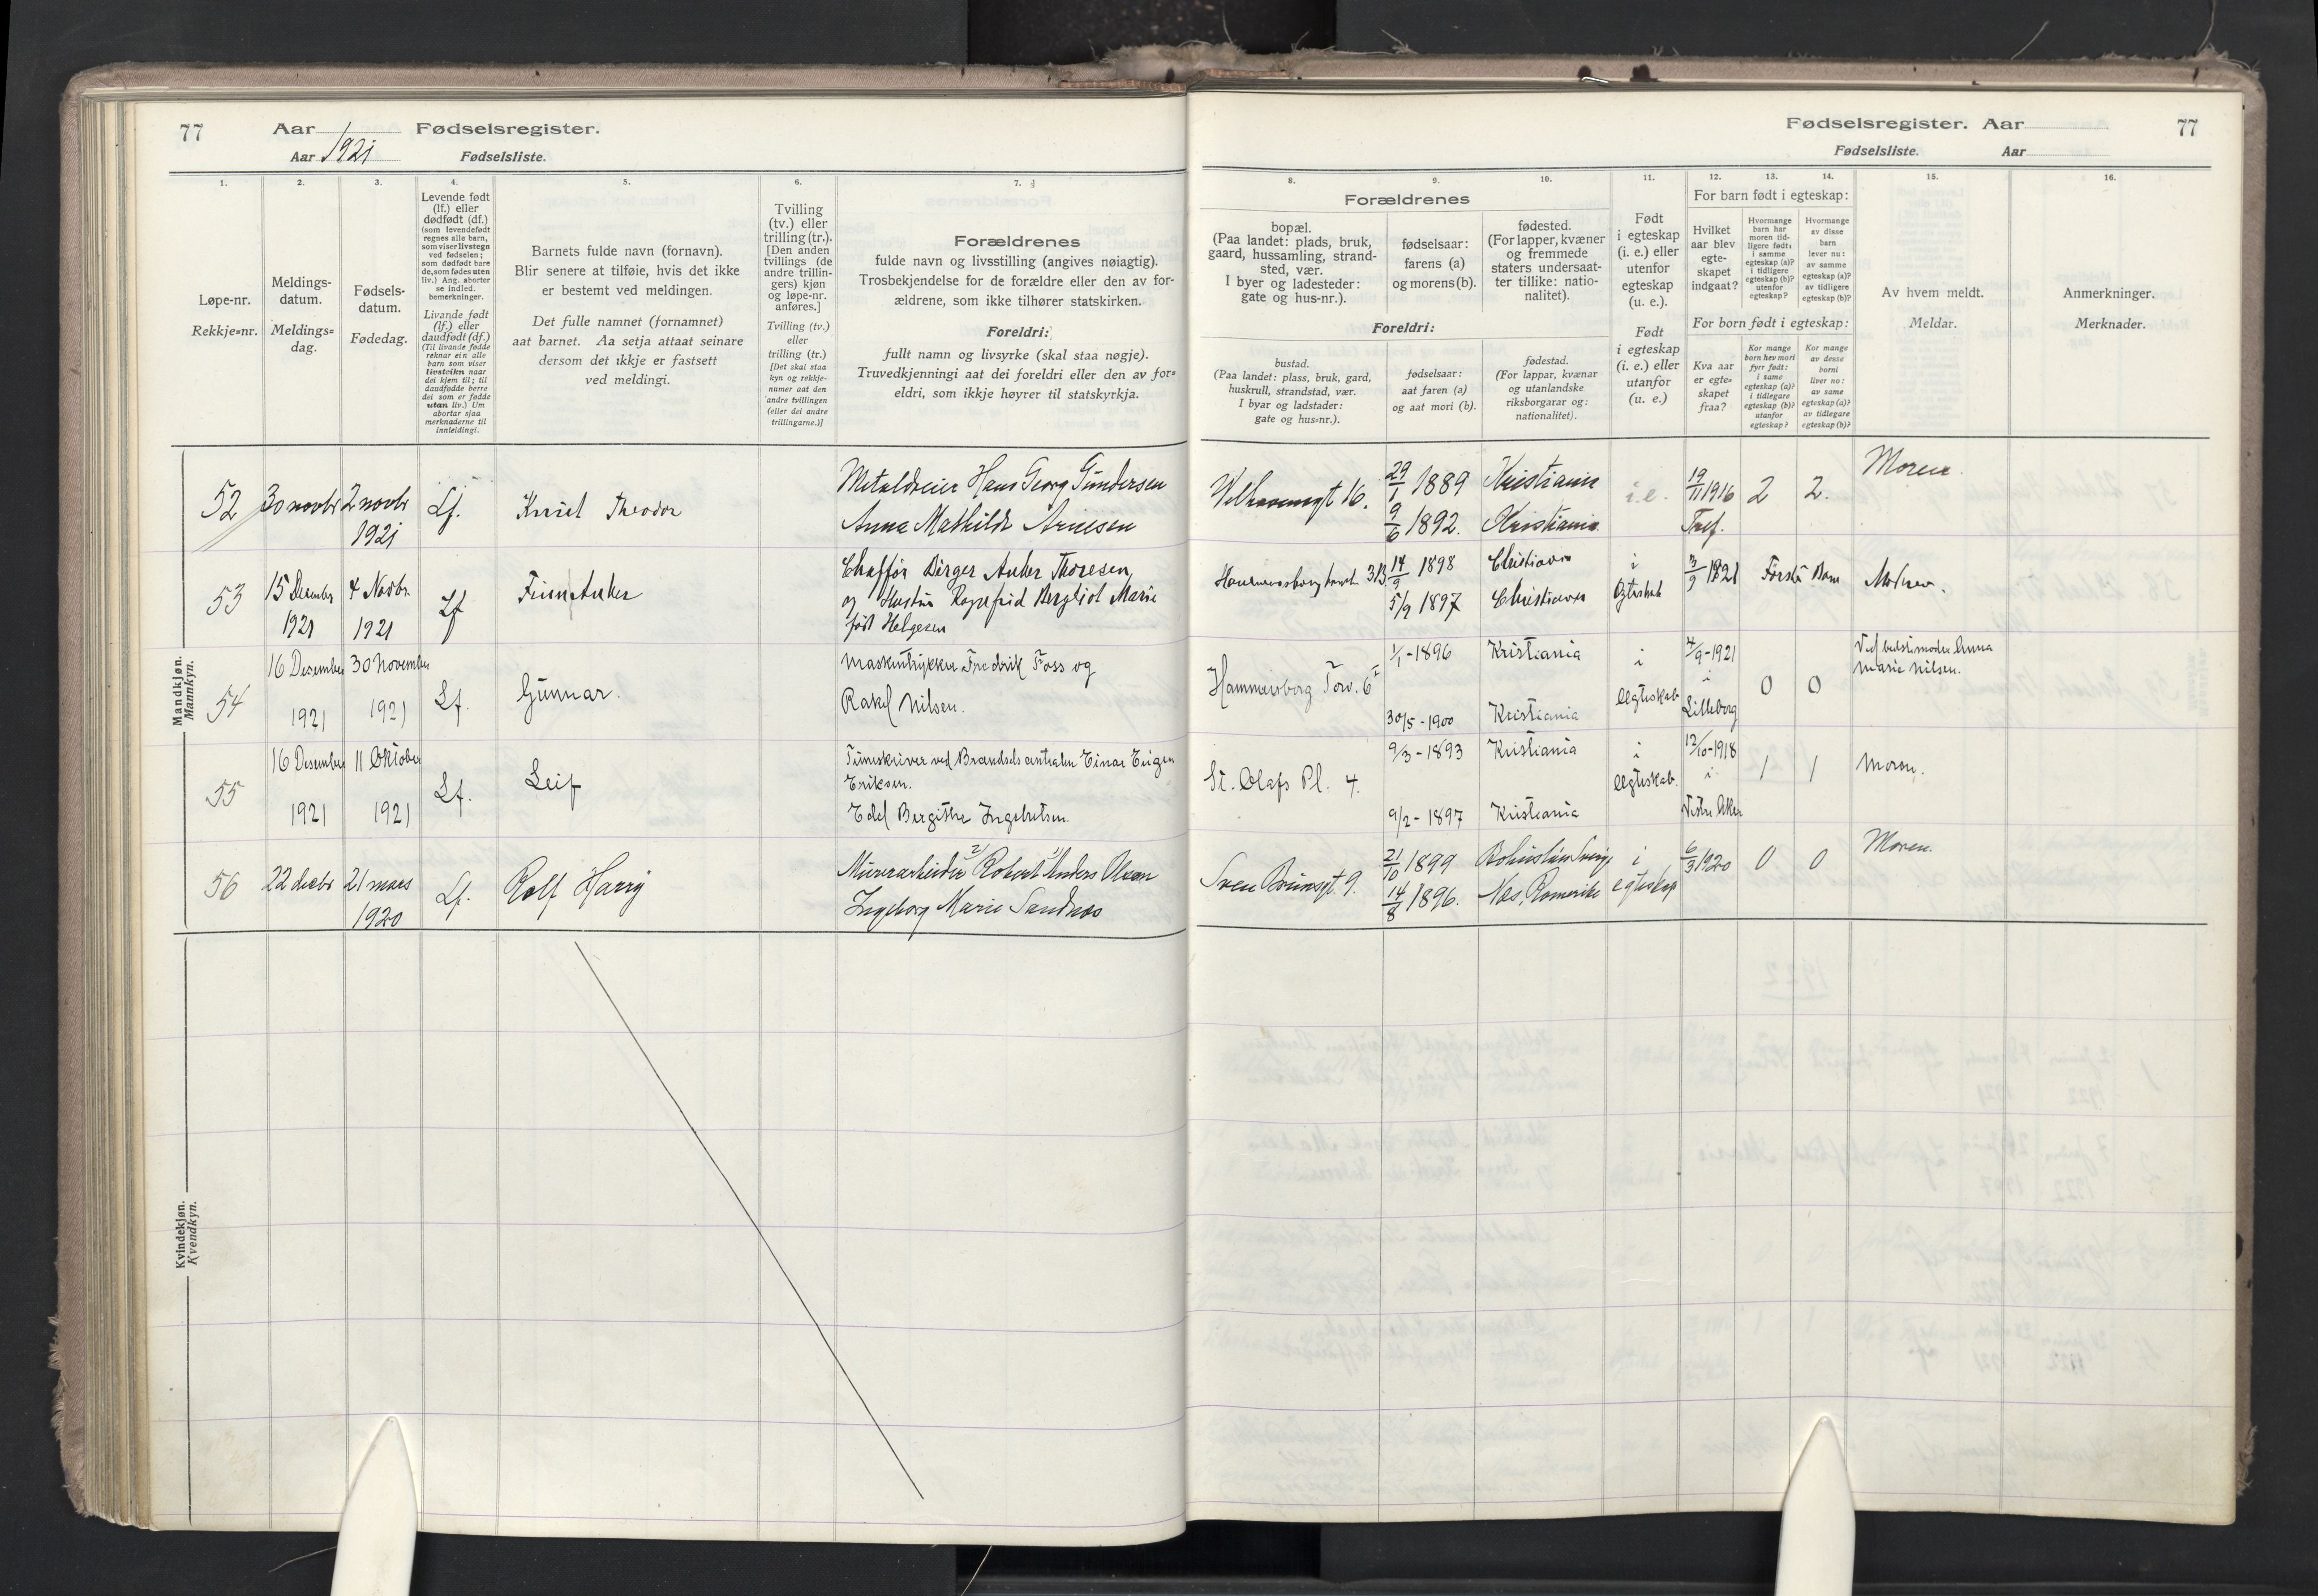 77
Aar 1921
Fødselsregister.
Aar
Fødselsliste.
1.
2.
3.
4.
5.
6.
7.
Løpe-nr.
Rekkje=nr.
Meldings-
datum.
Meldings=
dag.
Fødsels-
datum.
Fødedag.
Levende født
(lf.) eller
dødfødt (df.)
(som levendefødt
regnes alle barn,
som viser livstegn
ved fødselen;
som dødfødt bare
de, som fødes uten
liv.) Ang. aborter
se indled.
bemerkninger.
Livande født
(lf.) eller
daudfødt (df.)
(Til livande fødde
reknar ein alle
barn som viser
livsteikn naar
dei kjem til; til
daudfødde berre
dei som er fødde
utan liv.) Um
abortar sjaa
merknaderne til
innleidingi.
Barnets fulde navn (fornavn).
Blir senere at tilføie, hvis det ikke
er bestemt ved meldingen.
Det fulle namnet (fornamnet)
aat barnet. Aa setja attaat seinare
dersom det ikkje er fastsett
ved meldingi.
Tvilling
(tv.) eller
trilling (tr.).
[Den anden
tvillings (de
andre trillin-
gers) kjøn
og løpe-nr.
anføres.]
Tvilling (tv.)
eller
trilling (tr.)
[Det skal staa
kyn og rekkje-
numer aat den
andre tvillingen
(eller dei andre
trillingarne.)]
Forældrenes
fulde navn og livsstilling (angives nøiagtig).
Trosbekjendelse for de forældre eller den av for-
ældrene, som ikke tilhører statskirken.
Foreldri:
fullt namn og livsyrke (skal staa nøgje).
Truvedkjenningi aat dei foreldri eller den av for=
eldri, som ikkje høyrer til statskyrkja.
Mandkjøn.
Mannkyn.
52
30 novbr
2 novbr
1921
Lf.
Theodor
Hans Georg Gundersen
Anna Mathilde Arnesen
53
15 Desember
1921
4 Novbr.
1921
Lf
Finn Anker
Chaffør Birger Anker Thoresen
og Hustru Ragnfrid Bergliot Marie
født Helgesen
54
16 Desember
1921
30 November
1921
Lf.
Gunnar.
Maskintrykker Fredrik Foss og
Rakel Nilsen.
55
16 Desember
1921
11 Oktober
1921
Lf.
Leif
Timeskriver ved Brændselscentralen Einar Eugen
Eriksen.
Edel Bergithe Ingebretsen.
56
22 decbr
21 mars
1920
Lf.
Rolf Harry
Murerarbeider Robert Anders Olsen
Ingeborg Marie Sandnæs
Kvindekjøn.
Kvendkyn.
Fødselsregister. Aar
77
Fødselsliste.
Aar
8.
9.
10.
11.
12.
13.
14.
15.
16.
Forældrenes
bopæl.
(Paa landet: plads, bruk,
gaard, hussamling, strand-
sted, vær.
I byer og ladesteder:
gate og hus-nr.).
fødselsaar:
farens (a)
og morens (b).
fødested.
(For lapper, kvæner
og fremmede
staters undersaat-
ter tillike: natio-
nalitet).
Foreldri:
bustad.
(Paa landet: plass, bruk, gard,
huskrull, strandstad, vær.
I byar og ladstader:
gate og hus=nr.).
fødselsaar:
aat faren (a)
og aat mori (b).
fødestad.
(For lappar, kvænar
og utanlandske
riksborgarar og:
nationalitet).
Født
i egteskap
(i. e.) eller
utenfor
egteskap
(u. e.).
Født
i egteskap
(i. e.) eller
utanfor
(u. e.)
For barn født i egteskap:
Hvilket
aar blev
egte-
skapet
indgaat?
Hvormange
barn har
moren tid-
ligere født:
i samme
egteskap (a)?
i tidligere
egteskap (b)?
utenfor
egteskap?
Hvormange
av disse
barn
lever nu:
av samme
egteskap (a)?
av tidligere
egteskap (b)?
For born født i egteskap:
Kva aar
er egte=
skapet
fraa?
Kor mange
born hev mori
fyrr født:
i same
egteskap (a)?
i tidlegare
egteskap (b)?
utanfor
egteskap?
Kor mange
av desse
borni
liver no:
av same
egteskap (a)?
av tidlegare
egteskap (b)?
Av hvem meldt.
Meldar.
Anmerkninger.
Merknader.
Welhavensgt 16.
29/1 1889
9/6 1892.
Kristiania
Kristiania
i.e.
19/11 1916
Tref.
2
2.
Moren.
14/9 1898
5/9 1897
Christiania
Christiania
i
Egteskab
3/9 1921
Første Barn
Moren.
Hammersborg Torv. 6
1/1-1896
30/5-1900
Kristiania
Kristiania
i
Egteskab
4/9-1921
i
Lilleborg
0
0
Ved bedstemoder Anna
Marie Nilsen.
St. Olafs Pl. 4.
9/3-1893
9/2-1897
Kristiania
Kristiania
i
Egteskab
12/10-1918
i
Vestre Aker
1
1
Moren.
Sven Brunsgt. 9.
21/10 1899
14/8 1896.
Bohuslän Sverige
Nes, Romerike
i
egteskap
6/3 1920
0
0
Moren.